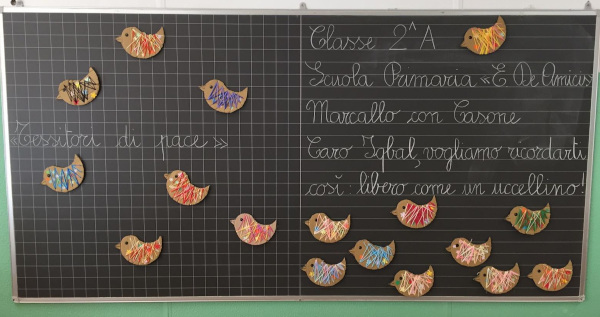 «Tessitori di pace»
Classe 2^A
Scuola Primaria «E. De Amicis»
Marcallo con Casone
Caro Iqbal, vogliamo ricordarti
così: libero come un uccellino!